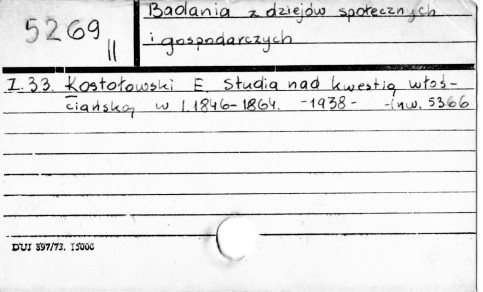 5269
II
Badania z dziejów społecznych
i gospodarczych
I. 33. Kostołowski E. Studia nad kwestią włoś-
ciańską w l. 1846-1864. -1938- -inw. 5366
DUI 897/73. 15000